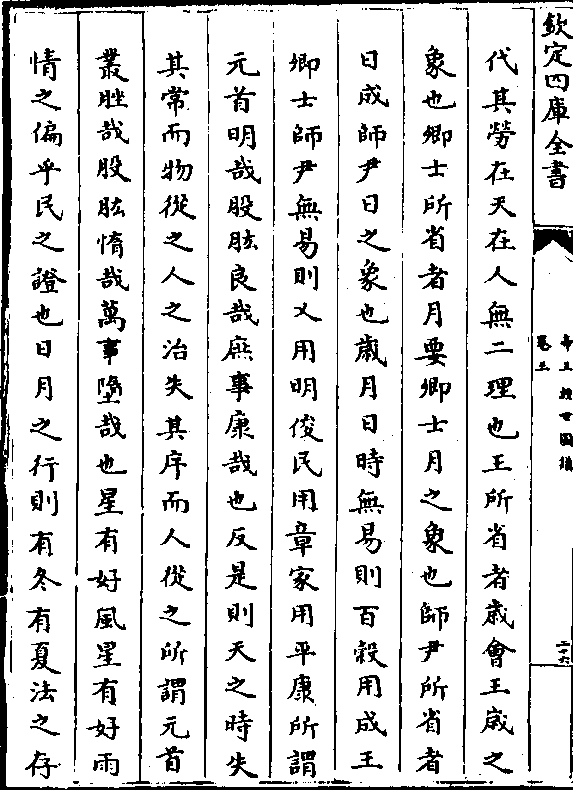 欽定四庫全書
帝王經世圖譜
卷三
二十六
代其勞在天在人無二理也王所省者歲會王歲之
象也卿士所省者月要卿士月之象也師尹所省者
日成師尹日之象也歲月日時無易則百穀用成王
卿士師尹無易則乂用明俊民用章家用平康所謂
元首明哉股肱良哉庶事康哉也反是則天之時失
其常而物從之人之治失其序而人從之所謂元首
叢脞哉股肱惰哉萬事墮哉也星有好風星有好雨
情之偏乎民之證也日月之行則有冬有夏法之存